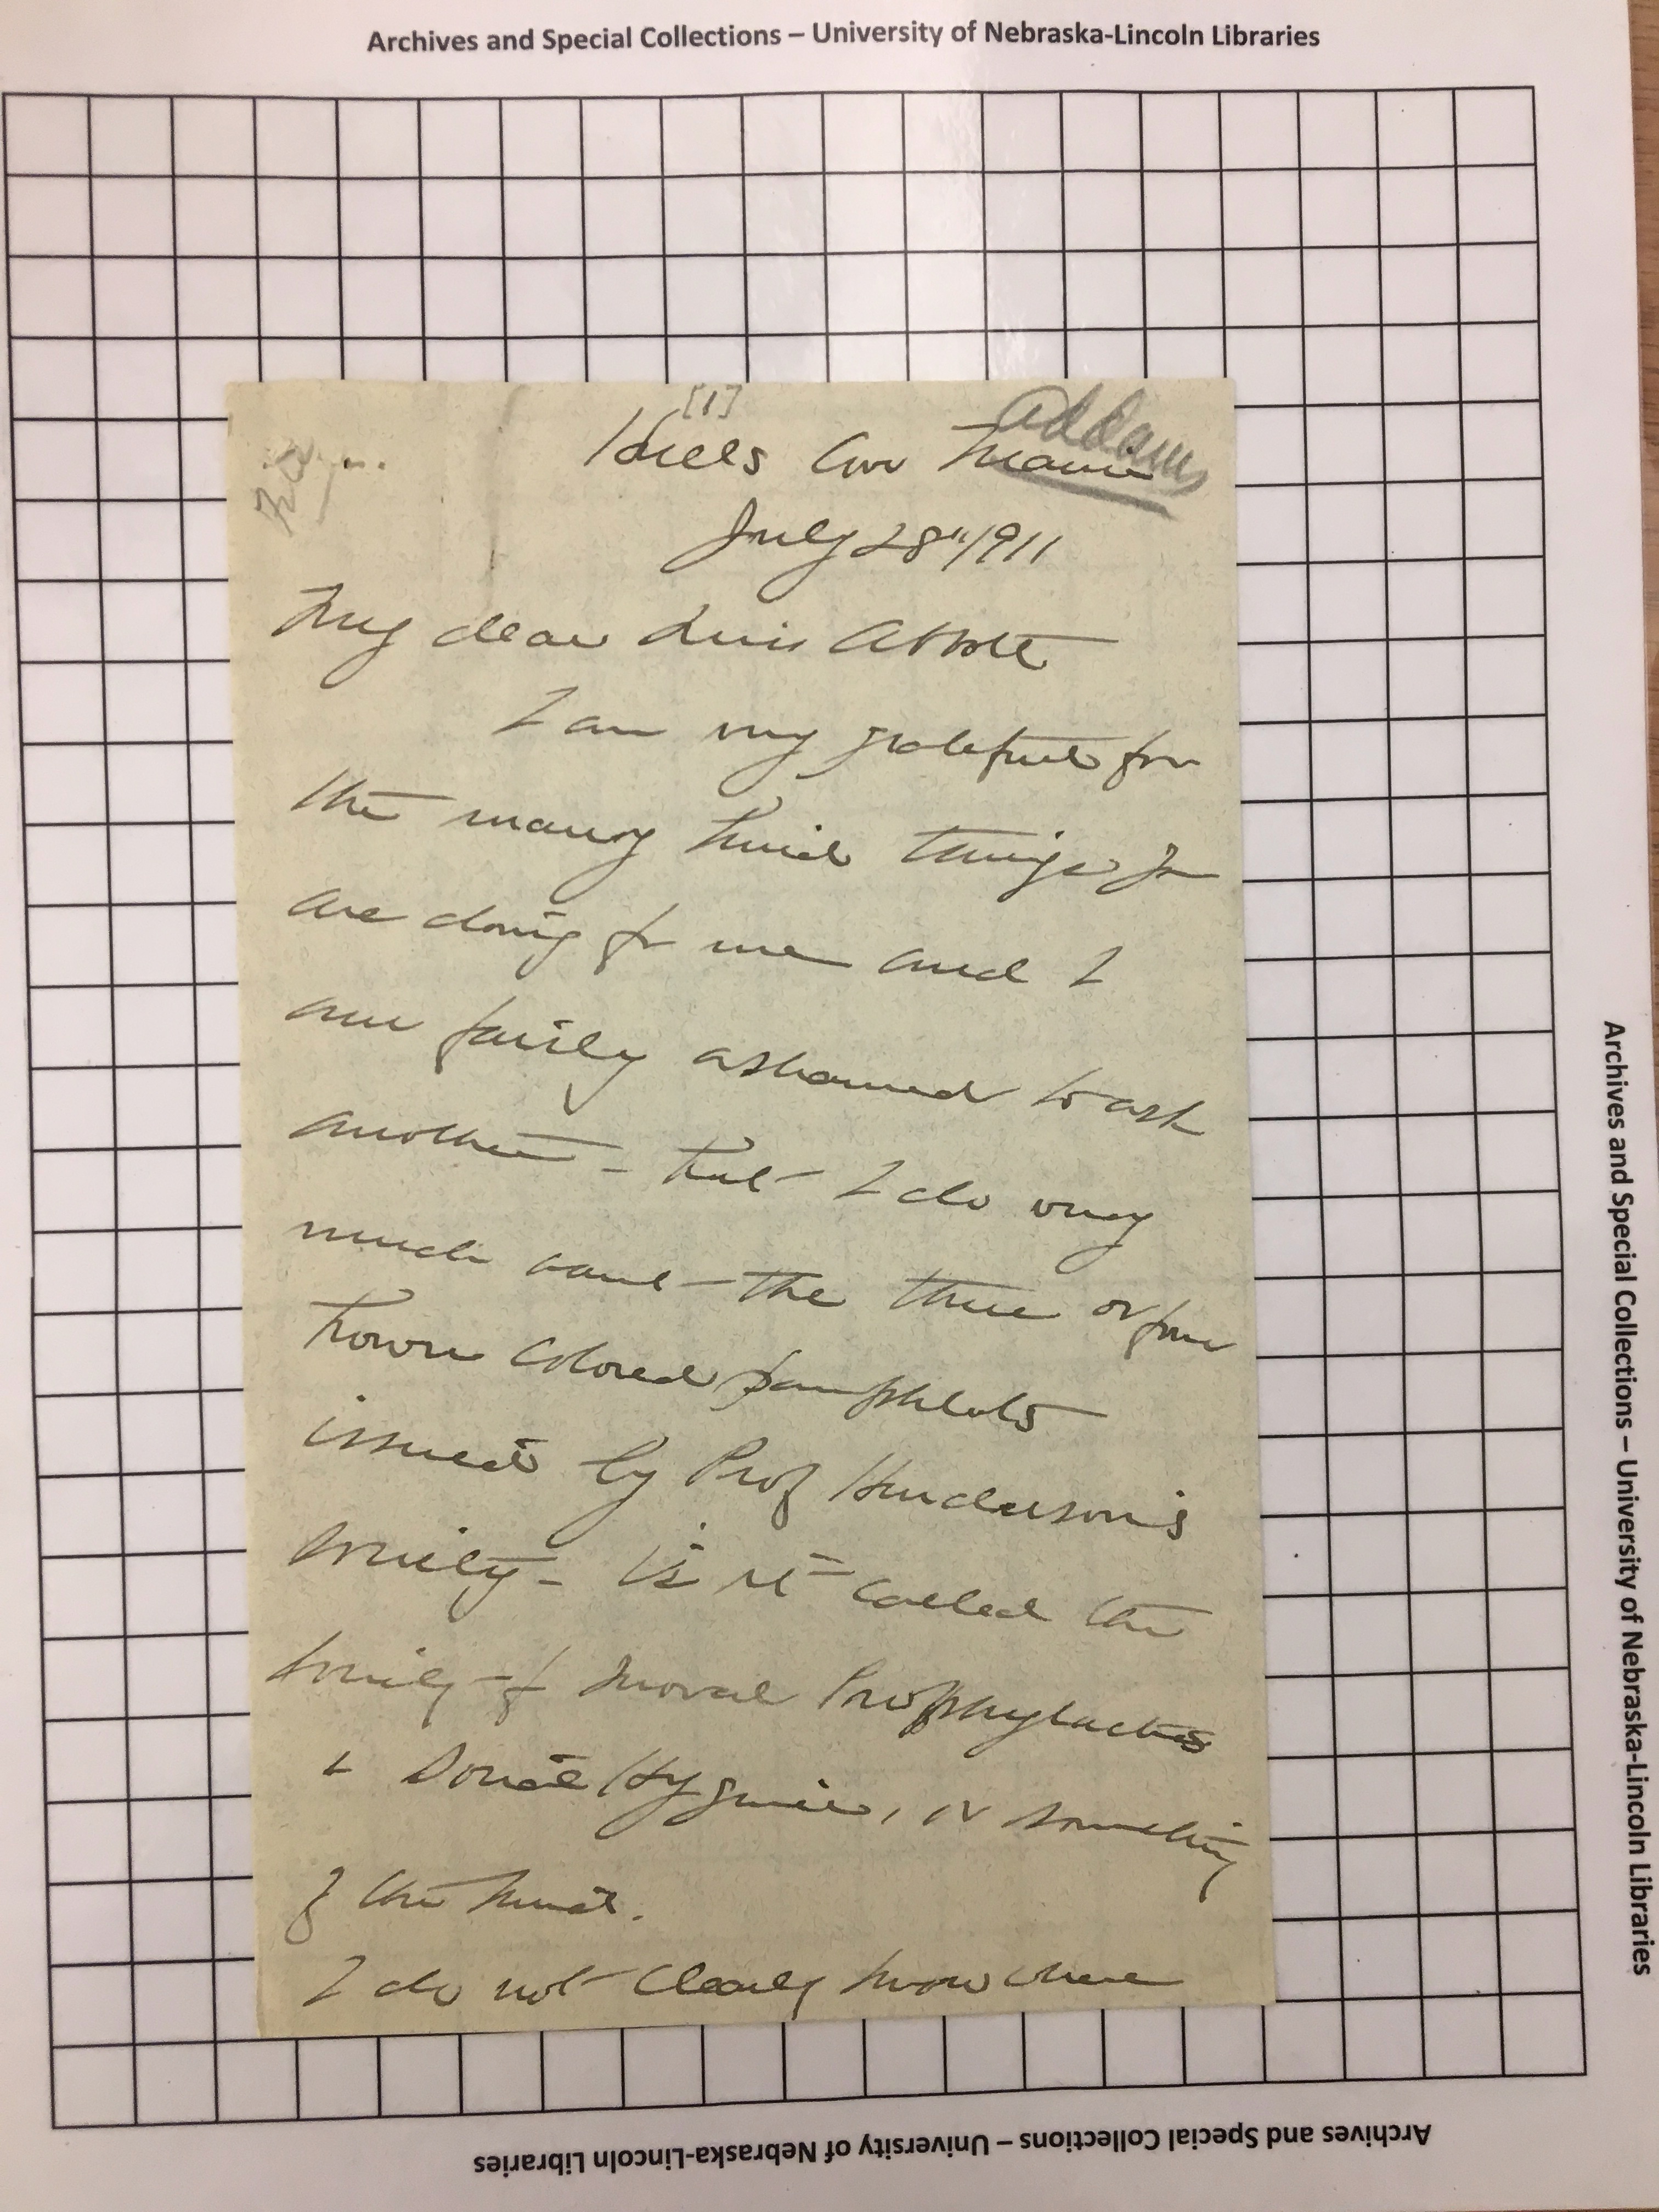 Archives and Special Collections – University of Nebraska-Lincoln Libraries
[1]
Addams
Hulls Cove Maine
July 28" 1911
My dear Miss Abbott
I am very grateful for
the many kind things you
are doing for me and I
am fairly ashamed to ask
another – but I do very
much want the three or four
brown colored pamphlets
issued by Prof Henderson's
society – Is it called the
Society of Moral Prophylactics
& Social Hygiene, or something
of the kind.
I do not clearly know where
Archives and Special Collections – University of Nebraska-Lincoln Libraries
Archives and Special Collections – University of Nebraska-Lincoln Libraries